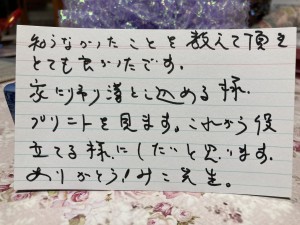 知らなかったことを教えて頂き
とても良かったです。
家に帰り落とし込める様、
プリントを見ます。これから役
立てる様にしたいと思います。
ありがとう!みこ先生。